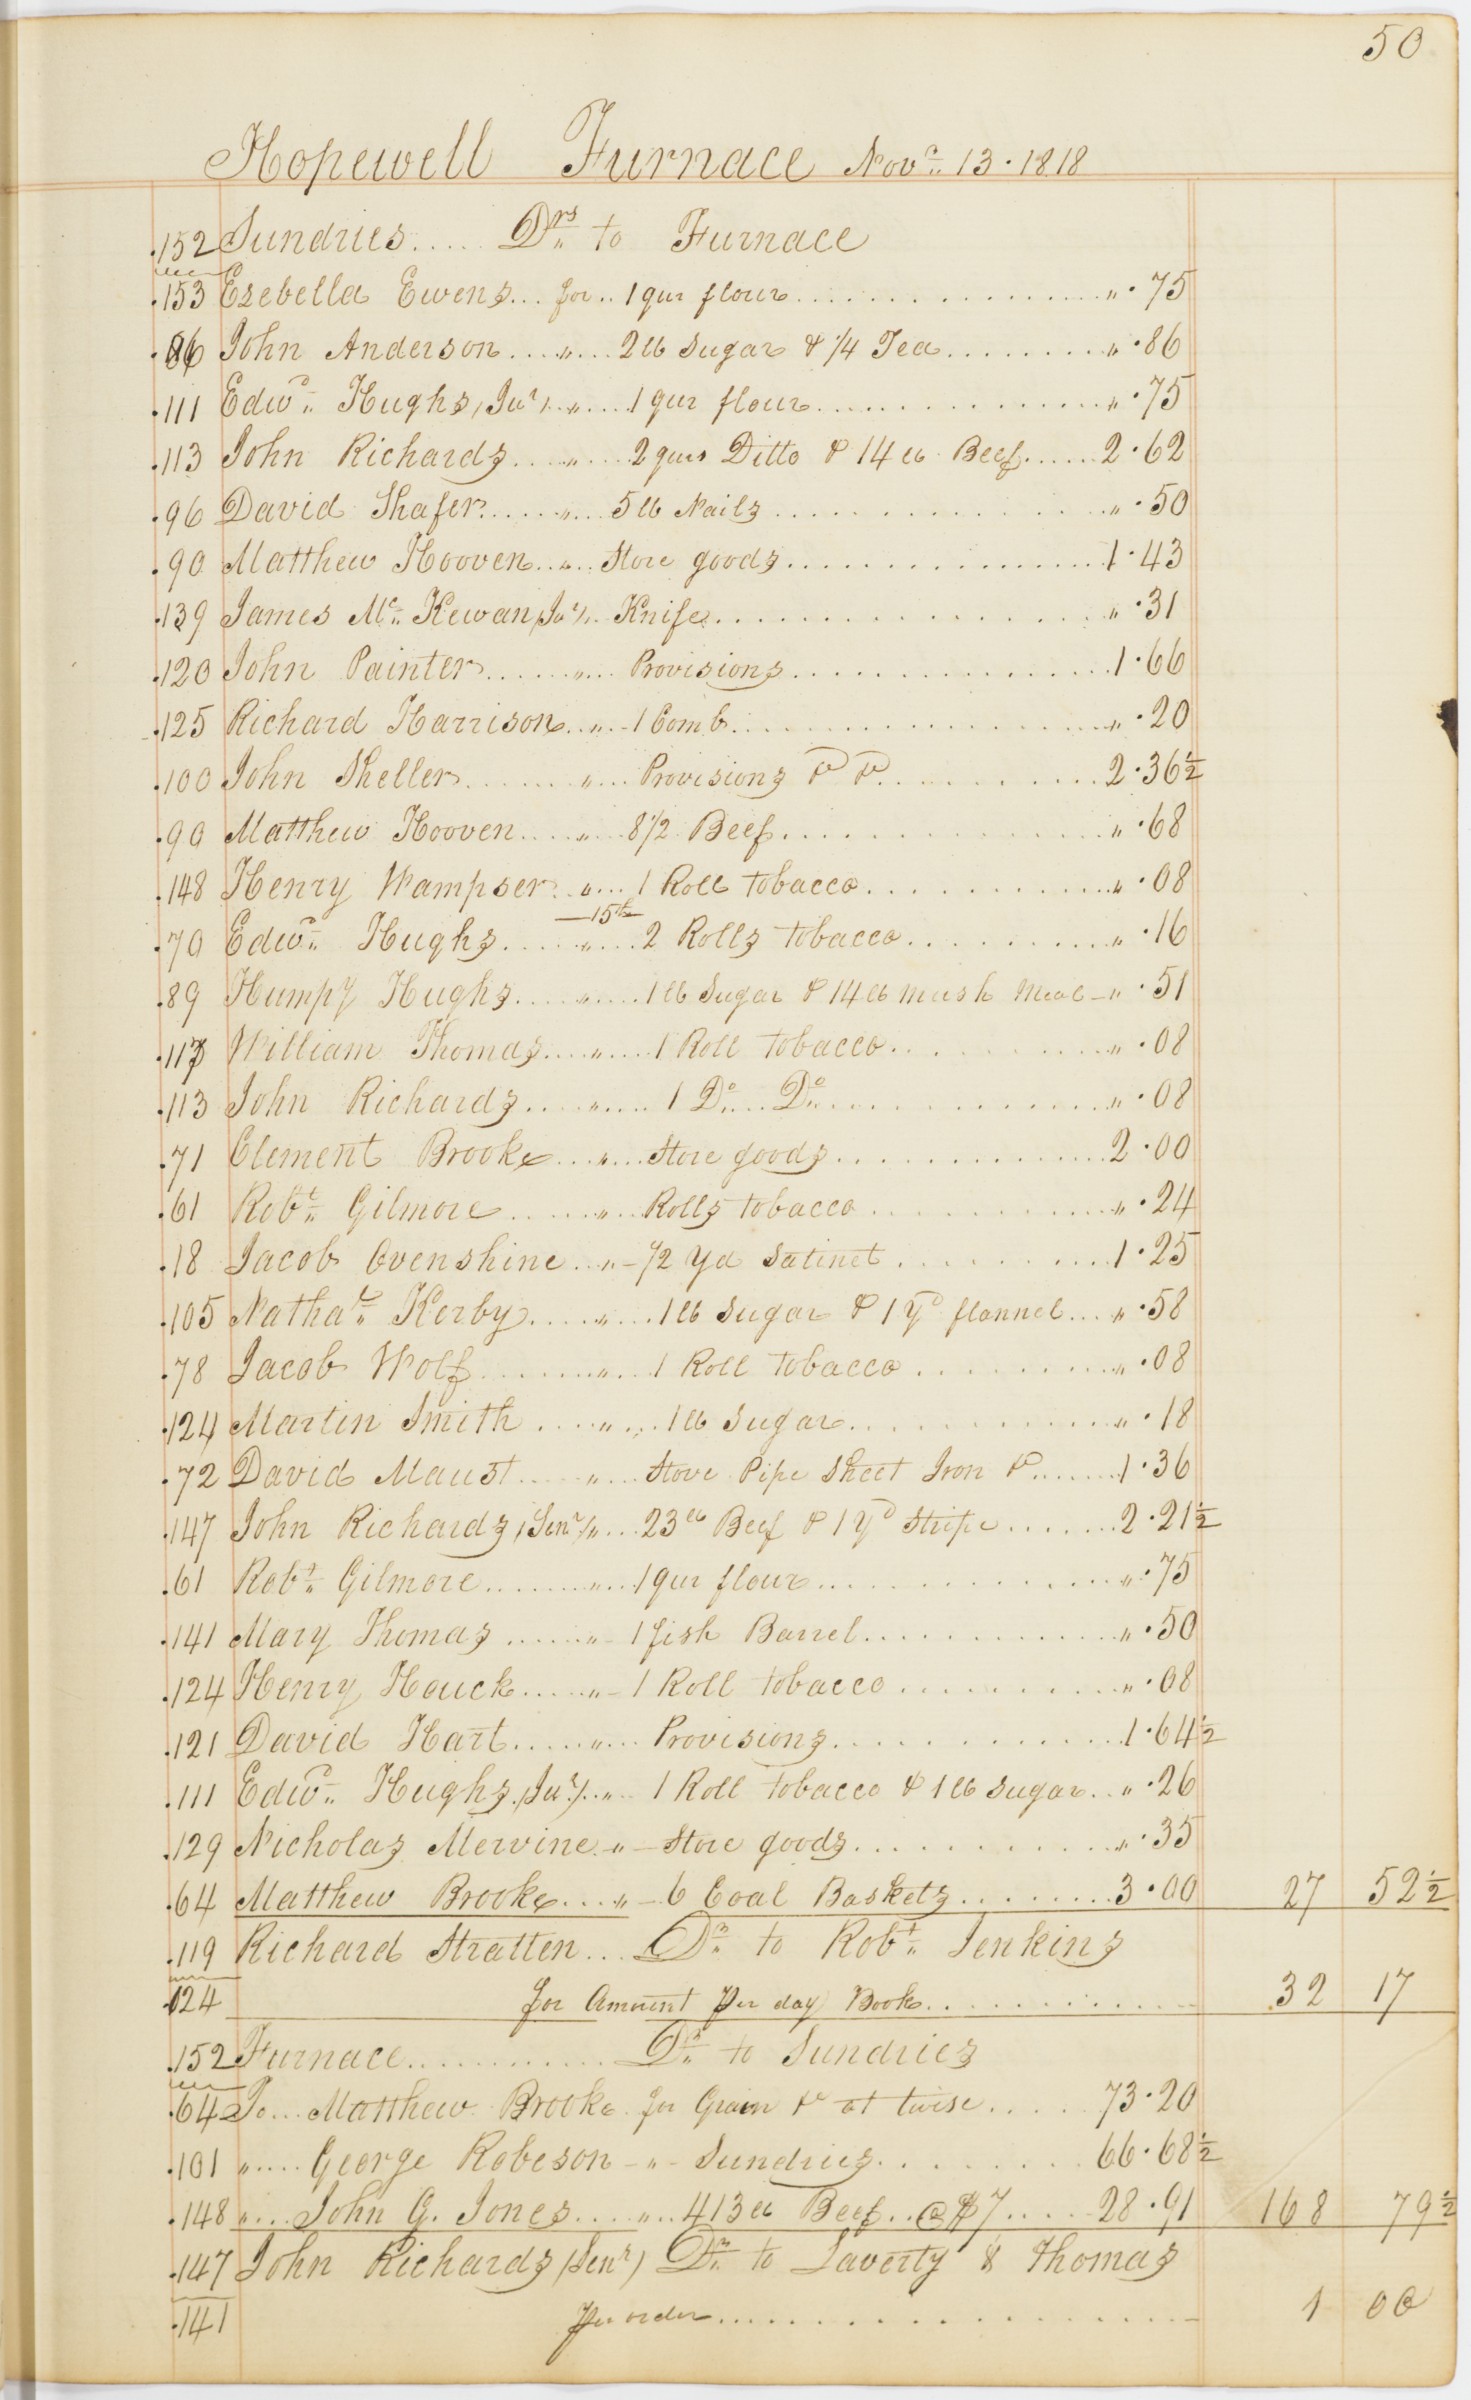 50
Hopewell Furnace Novr 13. 1818
152 Sundries..... Drs to Furnace
153 Esebella Ewens... for.. 1 qur flour...... " .75
86 John Anderson....".... 2 lb Sugar & 1/4 Tea...... " .86
111 Edwd Hughs, Jur/.. ".... 1 qur flour...... " .75
113 John Richards....".... 2 qurs Ditto & 14 lb Beef...... 2.62
96 David Shafer......".... 5 lb Nails...... " .50
90 Matthew Hooven..".. Store goods...... 1.43
139 James Mc Kewan, Jur/.. Knife...... " .31
120 John Painter......".... Provisions...... 1.66
125 Richard Harrison..".. 1 Comb...... " .20
100 John Sheller......".... Provisions &c &c...... 2.36½
90 Matthew Hooven....".... 8 1/2 Beef...... " .68
148 Henry Wampser..".... 1 Roll tobacco...... " .08
—15th—
70 Edwd Hughs....".... 2 Rolls tobacco...... " .16
89 Humpy Hughs....".... 1 lb Sugar & 14 lb mush Meal – " .51
117 William Thomas....".... 1 Roll tobacco...... " .08
113 John Richards....".... 1 Do.... Do...... " .08
71 Clement Brooke....".... Store goods...... 2.00
61 Robt Gilmore......".... Rolls tobacco...... " .24
18 Jacob Ovenshine.."– 1/2 Yd Satinet...... 1.25
105 Nathal Kerby....".... 1 lb Sugar & 1 Yd flannel.... " .58
78 Jacob Wolf......".... 1 Roll tobacco...... " .08
124 Martin Smith....".... 1 lb Sugar...... " .18
72 David Maust....".... Stove Pipe Sheet Iron &c...... 1.36
147 John Richards, Senr/".... 23 lb Beef & 1 Yd Stripe...... 2.21½
61 Robt Gilmore......".... 1 qur flour...... " .75
141 Mary Thomas......"– 1 fish Barrel...... " .50
124 Henry Houck...."– 1 Roll tobacco...... " .08
121 David Hart......".... Provisions...... 1.64½
111 Edwd Hughs, (Jur)..".. 1 Roll tobacco & 1 lb Sugar.. " .26
129 Nicholas Mervine.."– Store goods...... " .35
64 Matthew Brooke...."– 6 Coal Baskets...... 3.00 27 52½
119 Richard Stratten... Dr to Robt Jenkins
124 for Amount per day Book...... 32 17
152 Furnace...... Dr to Sundries
64 To... Matthew Brooke for Grain &c at twise..... 73.20
101 ".... George Robeson –"– Sundries...... 66.68½
148 ".... John G. Jones....".. 413 lb Beef.. @ $7..... 28.91 168 79½
147 John Richards (Senr) Dr to Laverty & Thomas
141 per order...... 1 00